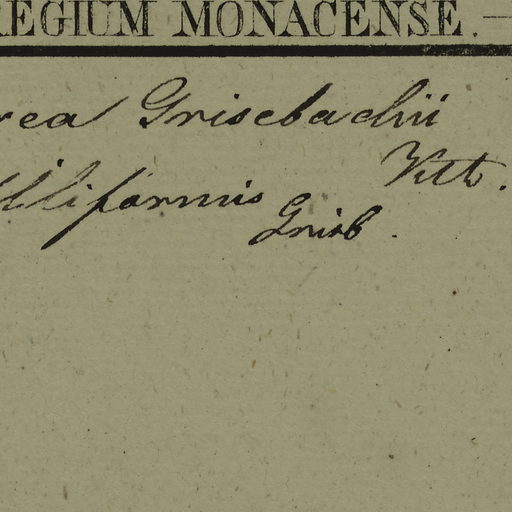 REGIUM MONACENSE.—
rea Grisebachii
Vitt.
filiformis
Griseb.